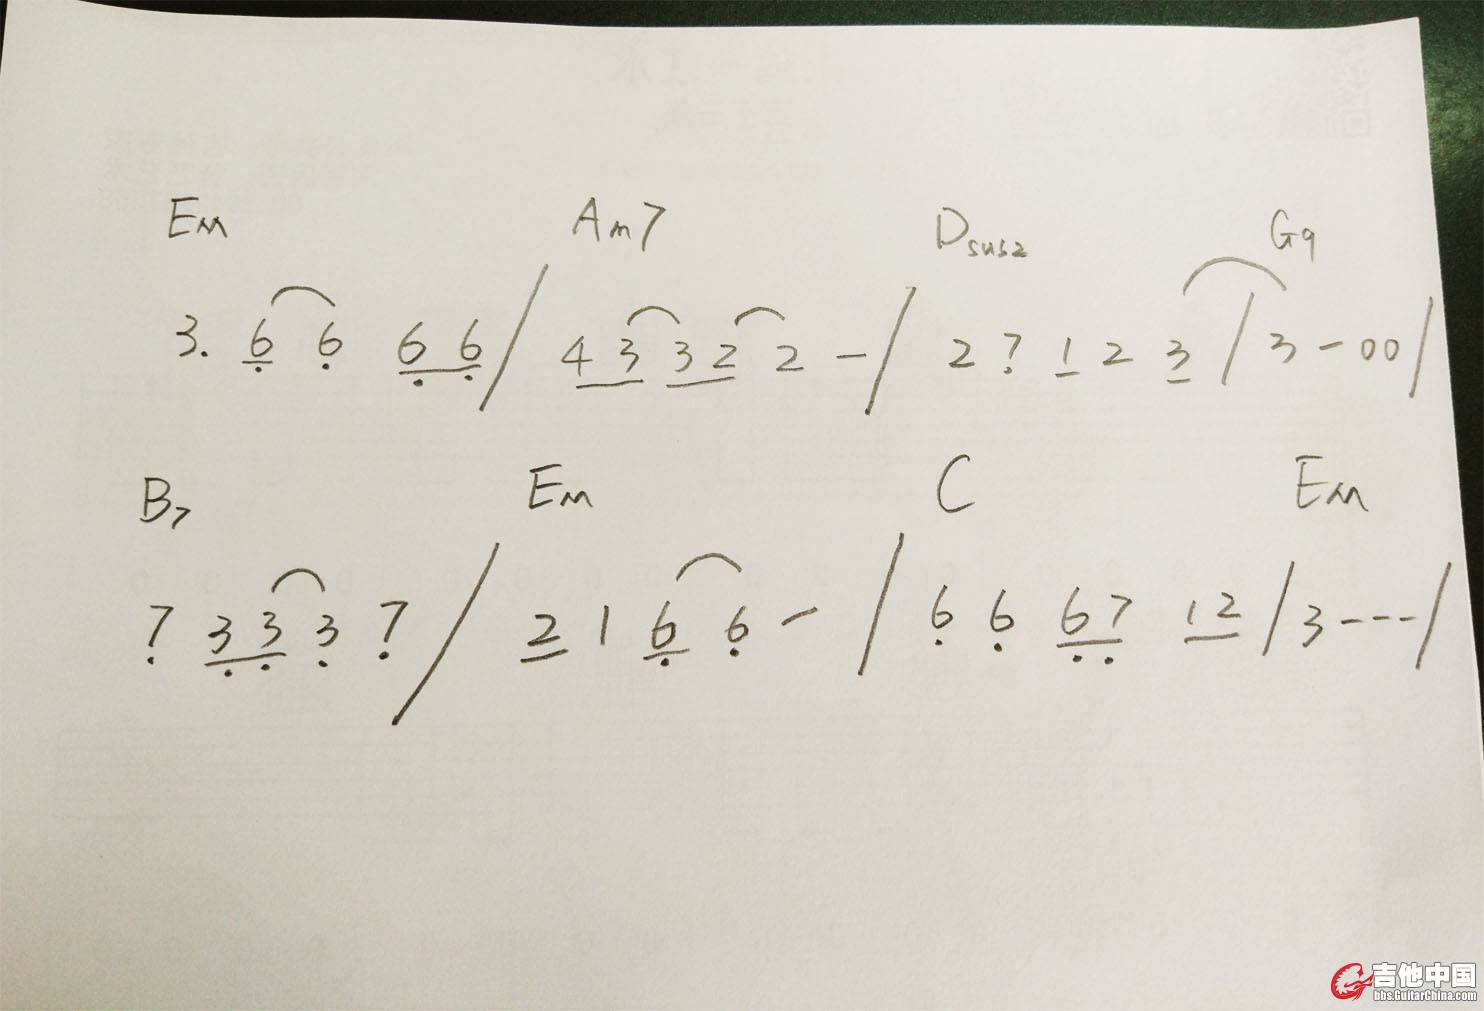 Em Am7 Dsus2 G9
3. 6 6 6 6 / 4 3 3 2 2 - / 2 7 1 2 3 / 3 - 0 0 /
B7 Em C Em
7 3 3 3 7 / 2 1 6 6 - / 6 6 6 7 1 2 / 3 - - - /
吉他中国
bbs.GuitarChina.com